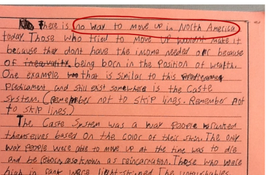 There is no way to move up in North America
today. Those who tried to move up wouldnt make it
because they dont have the income needed or because
of being born in the Position of wealth.
One example that is similar to this
Predicament, and still exist somewhere is the Caste
System. (remember not to skip lines. Remember not
to skip lines.)
The Caste System was a way People
themselves based on the color of their skin. The only
way People were able to move up at the time was to die
and be reborn also known as reincarnation. Those who were
high in rank were light skinned. The